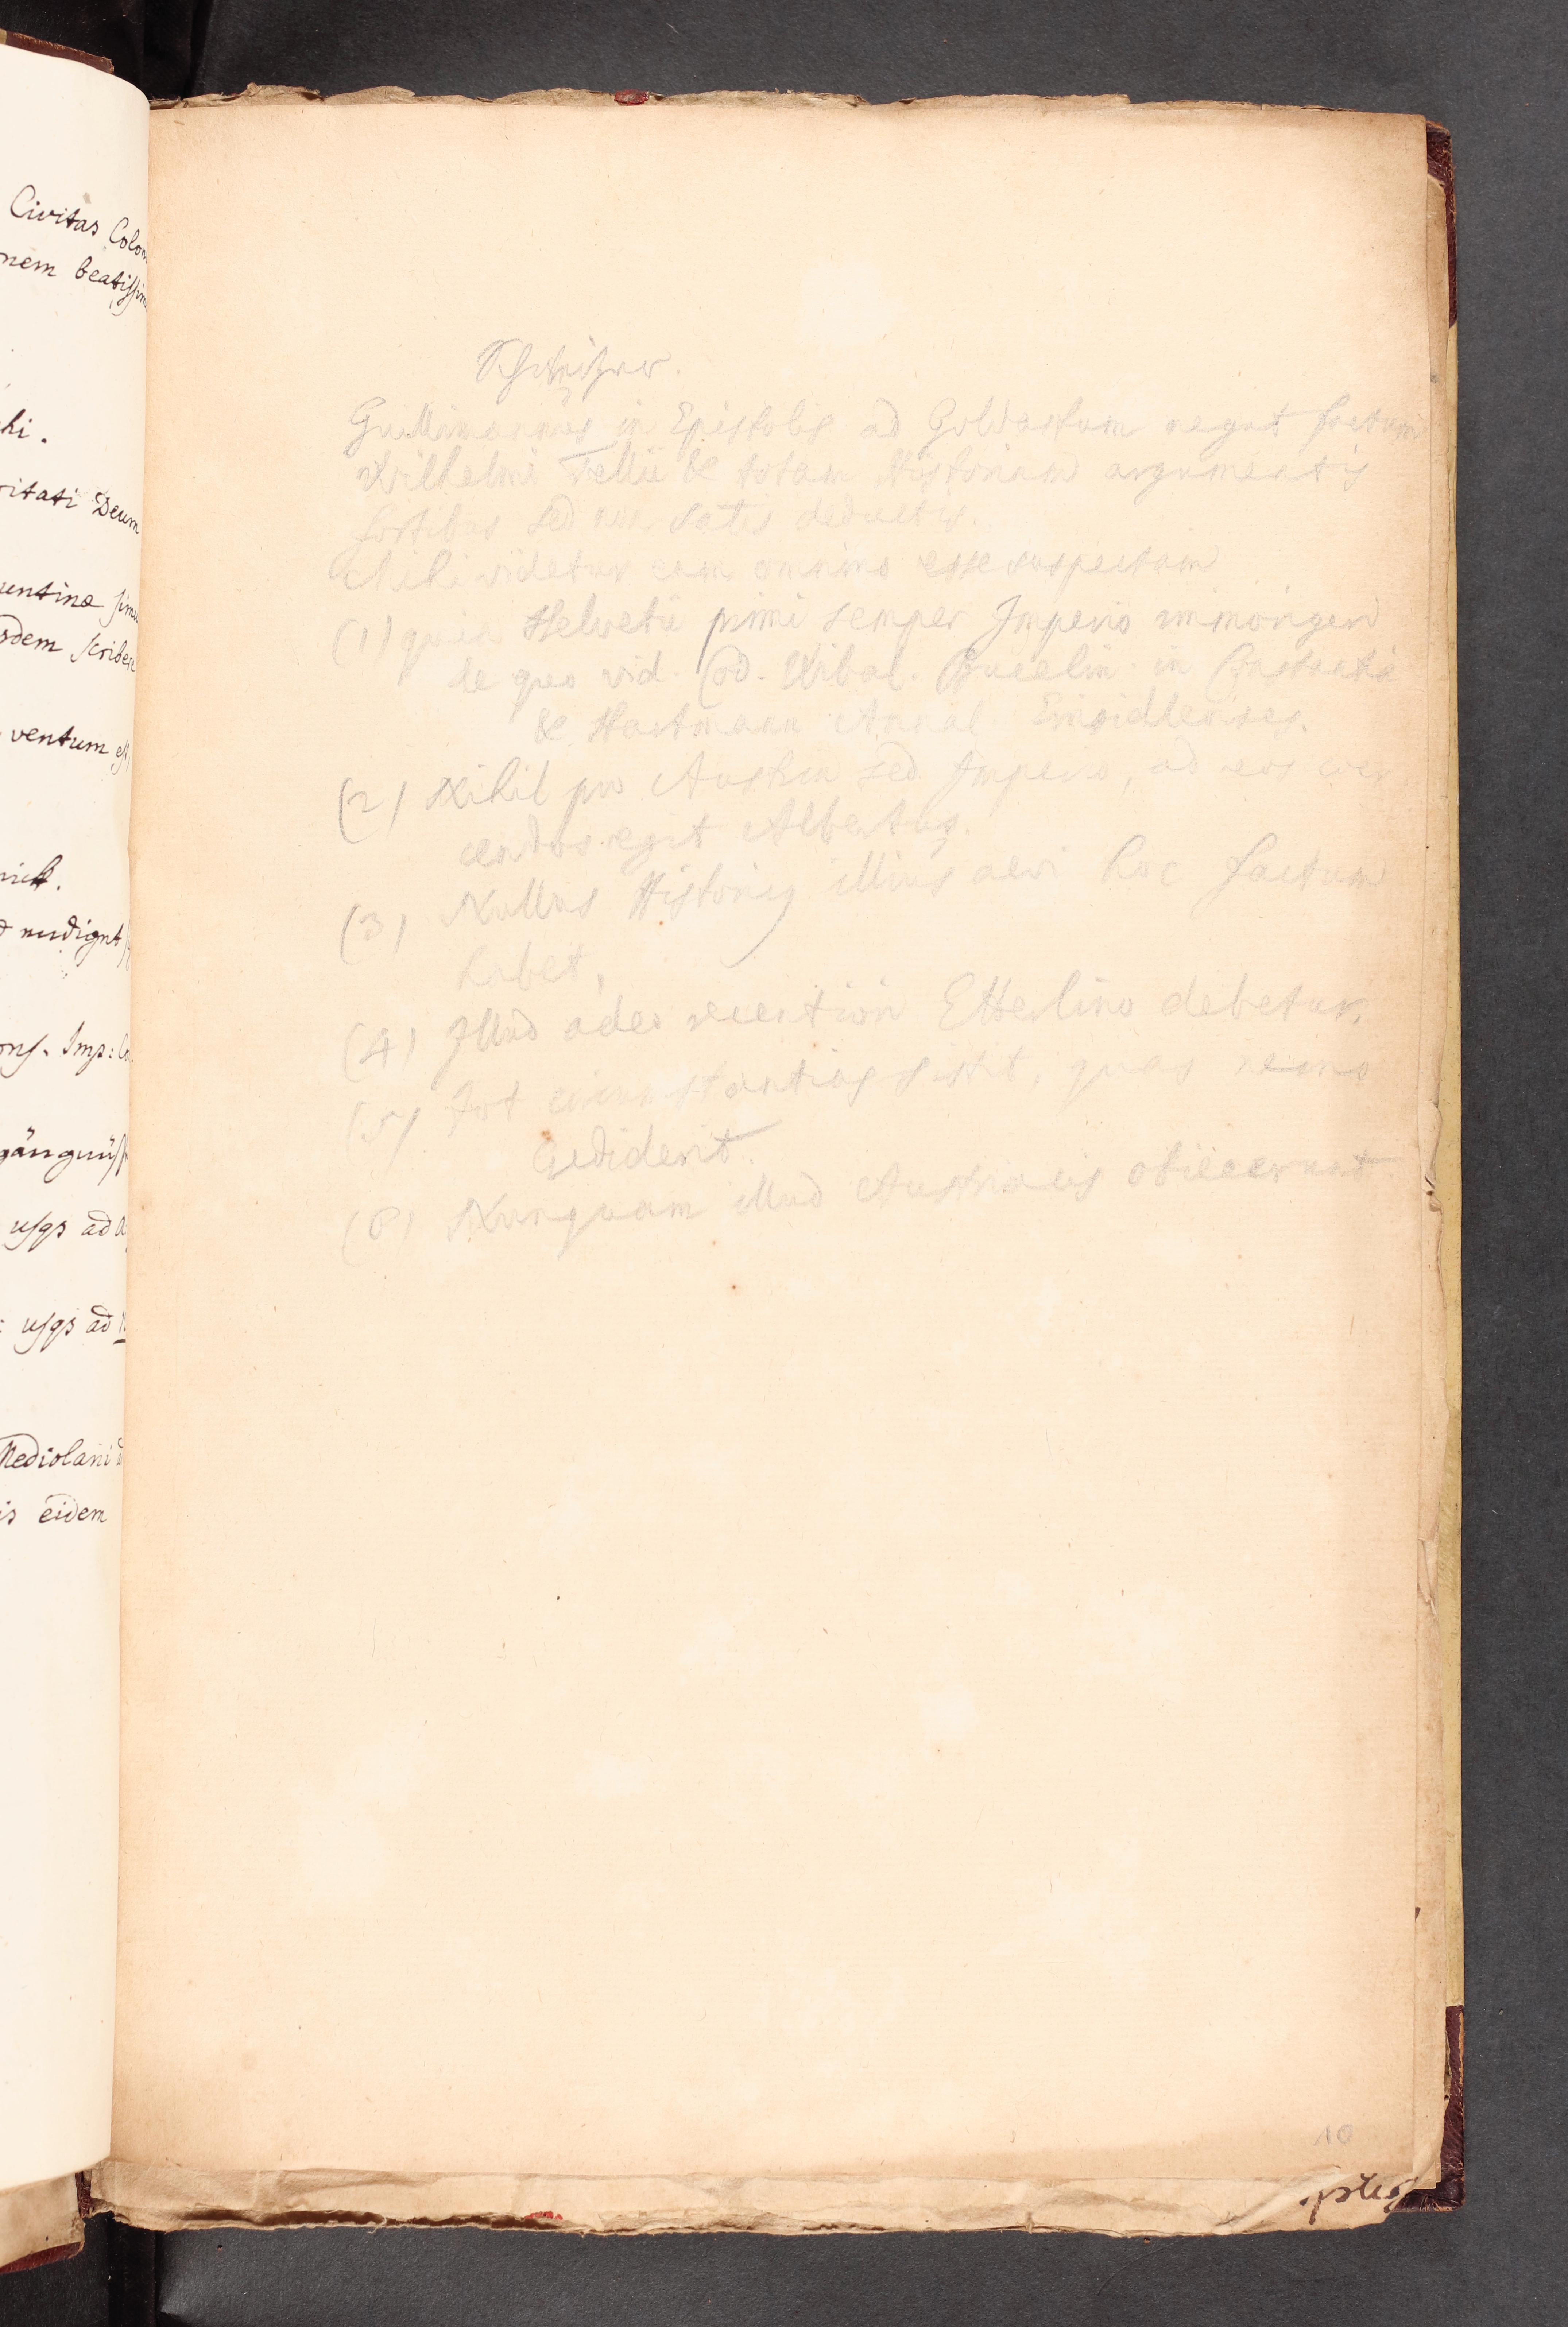 Civitas Colon
nem beatissim
hi.
ritati Deum
uentinæ sim
sdem scribere
ventum est
usqs ad
: usqs ad
Mediolani
is eidem
Schweitzer.
Guillimannus in Epistolis ad Goldastum negat factum
Wilhelmi Tellii & totam Historiam argumentis
fortibus sed non satis deductis.
Mihi videtur eam omnino esse suspectam
(1) quia Helvetii primi semper Imperio immorigeri
de quo vid. Cod. Bucelin. in Constantia
& Hartmann Annal. Einsidlenses.
(2) Nihil pro Austria sed Imperio, ad eos coer
cendos egit Albertus.
(3) Nullus Historicus illius aevi hoc factum
habet.
(4) Illud adeo recentiori Etterlino debetur.
(5) Tot circumstantias sistit, quas nemo
crediderit.
(6) Nunquam illud Austriacis obiecerunt.
10